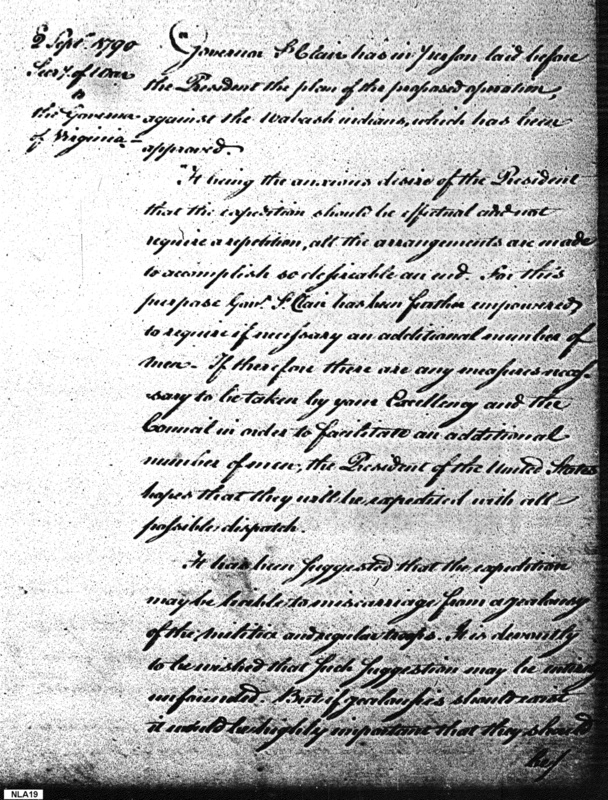 2 Sept. 1790
Secy. of War
to
the Governor
of Virginia
Governor St Clair has in person laid before
the President the plan of the proposed operation,
against the Wabash indians, which has been
approved.
It being the anxious desire of the President
that the expedition should be effectual and not
require a repetition, all the arrangements are made
to accomplish so desireable an end. For this
purpose Govr. St. Clair has been further empowered
to require if necessary an additional number of
men - If therefore there are any measures neces-
sary to be taken by your Excellency and the
Council in order to facilitate an additional
number of men, the President of the United States
hopes that they will be expedited with all
possible dispatch.
It has been suggested that the expedition
may be liable to miscarriage from a jealousy
of the militia and regular troops. It is devoutly
to be wished that such suggestion may be entirely
unfounded. But if jealousies should exist
it would be highly important that they should
be
NLA19